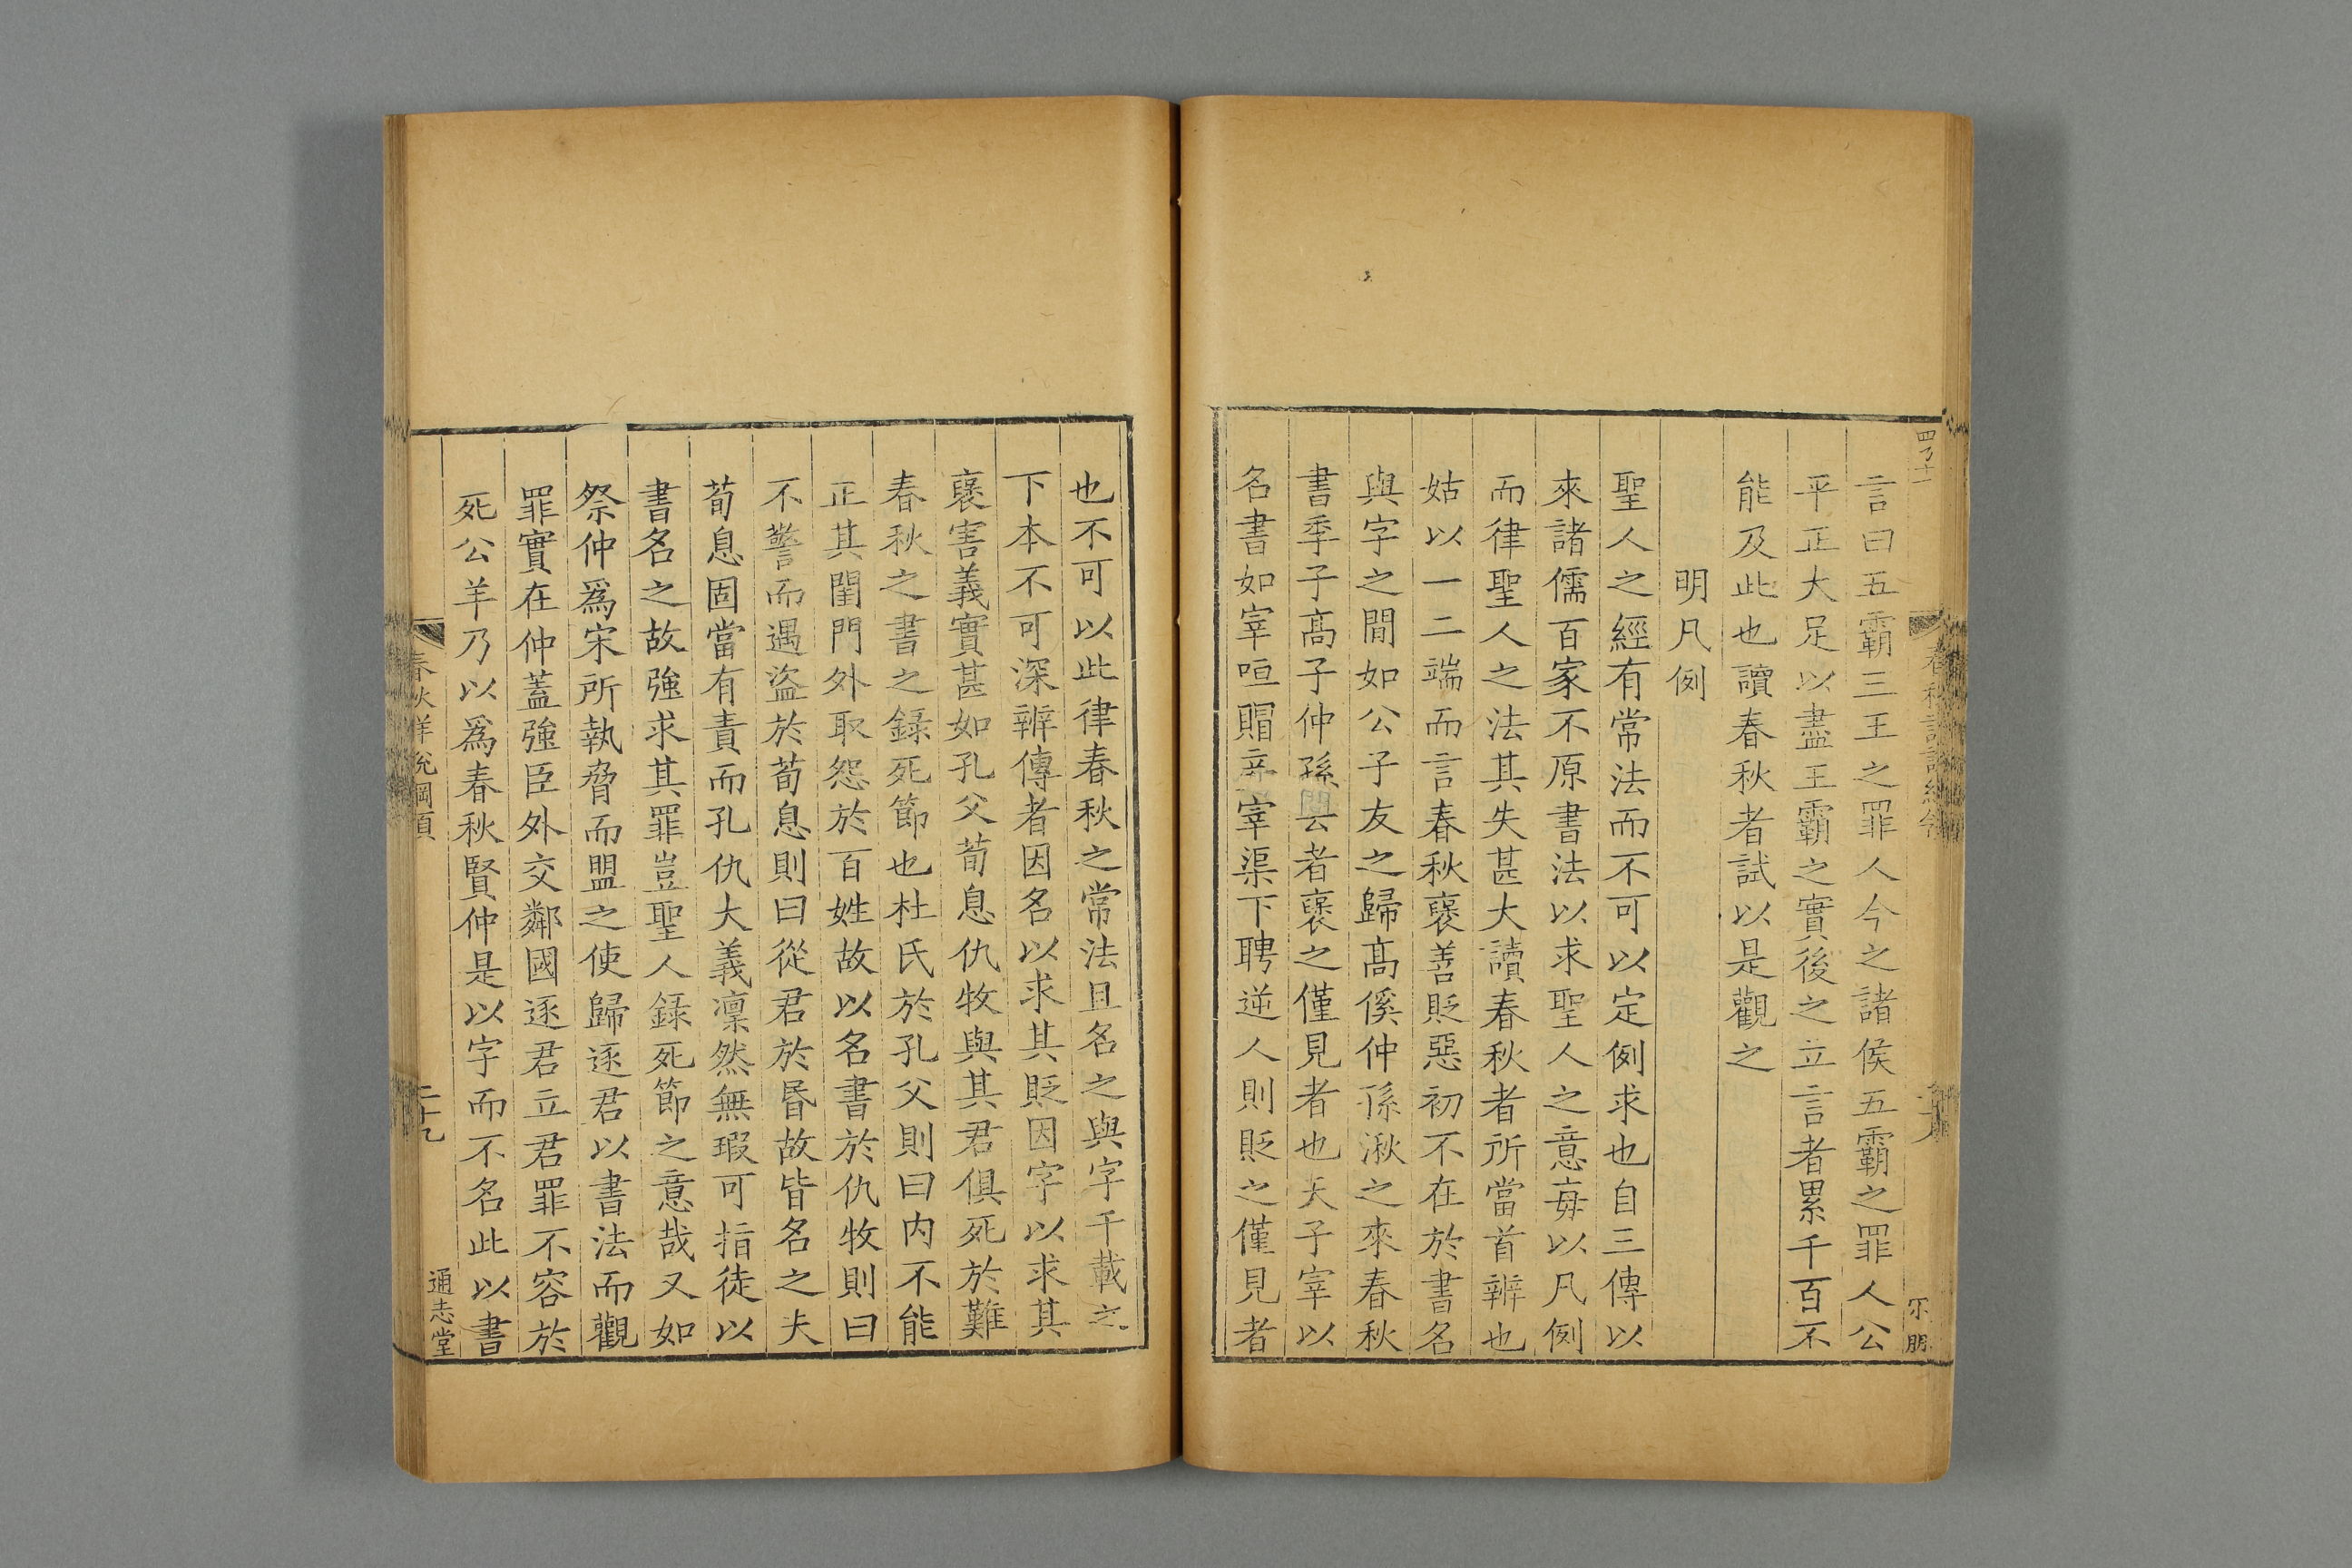 言曰五霸三王之罪人今之諸侯五霸之罪人公
平正大足以盡王霸之實後之立言者累千百不
能及此也讀春秋者試以是觀之
明凡例
聖人之經有常法而不可以定例求也自三傳以
來諸儒百家不原書法以求聖人之意毎以凡例
而律聖人之法其失甚大讀春秋者所當首辨也
姑以一二端而言春秋襃善貶惡初不在於書名
與字之間如公子友之歸髙傒仲孫湫之來春秋
書季子髙子仲孫云者襃之僅見者也天子宰以
名書如宰咺賵宰渠下聘逆人則貶之僅見者
也不可以此律春秋之常法且名之與字千載之
下本不可深辨傳者因名以求其貶因字以求其
襃害義實甚如孔父荀息仇牧與其君俱死於難
春秋之書之録死節也杜氏於孔父則曰内不能
正其閨門外取怨於百姓故以名書於仇牧則曰
不警而遇盜於荀息則曰從君於昬故皆名之夫
荀息固當有責而孔仇大義凜然無瑕可指徒以
書名之故強求其罪豈聖人録死節之意哉又如
祭仲爲宋所執脅而盟之使歸逐君以書法而觀
罪實在仲蓋強臣外交鄰國逐君立君罪不容於
死公羊乃以爲春秋賢仲是以字而不名此以書
春秋詳説綱領
二十九
通志堂